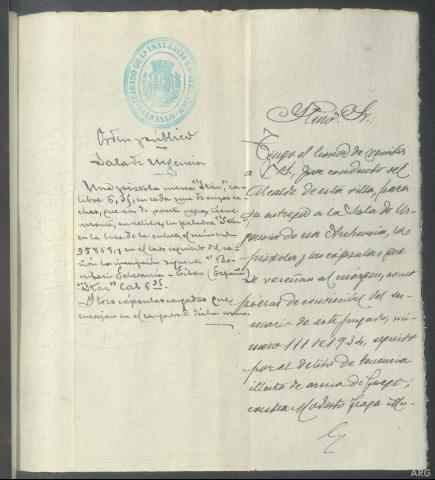 JUZGADO DE 1ª INSTANCIA E
CARBALLO
Orden público
Sala de Urgencia
Una pistola marca "Star", ca-
libre 6,35, en cada una de cuyas ca-
chas, que son de pasta negra, tiene
en relieve, la palabra "Star"
en la base de la culata el número
y en el lado izquierdo del ca-
ñón la inscripción siguiente "Bo-
nifacio Echeverria - Eibar (España)
"Star" Cal 6,35.
Y tres cápsulas cargadas que
encajan en el cargador de dicha arma
Iltmo. Sr.
Tengo el honor de remitir
a V.I., por conducto del
Alcalde de esta villa, para
su entrega a la Sala de Ur-
gencia de esa Audiencia, la
pistola y las cápsulas que
se reseñan al márgen, como
piezas de convicción del su-
mario de este juzgado, nú-
mero 111 de 1934, seguido
por el delito de tenencia
ilícita de arma de fuego,
contra Modesto Fraga Mu-
ARG